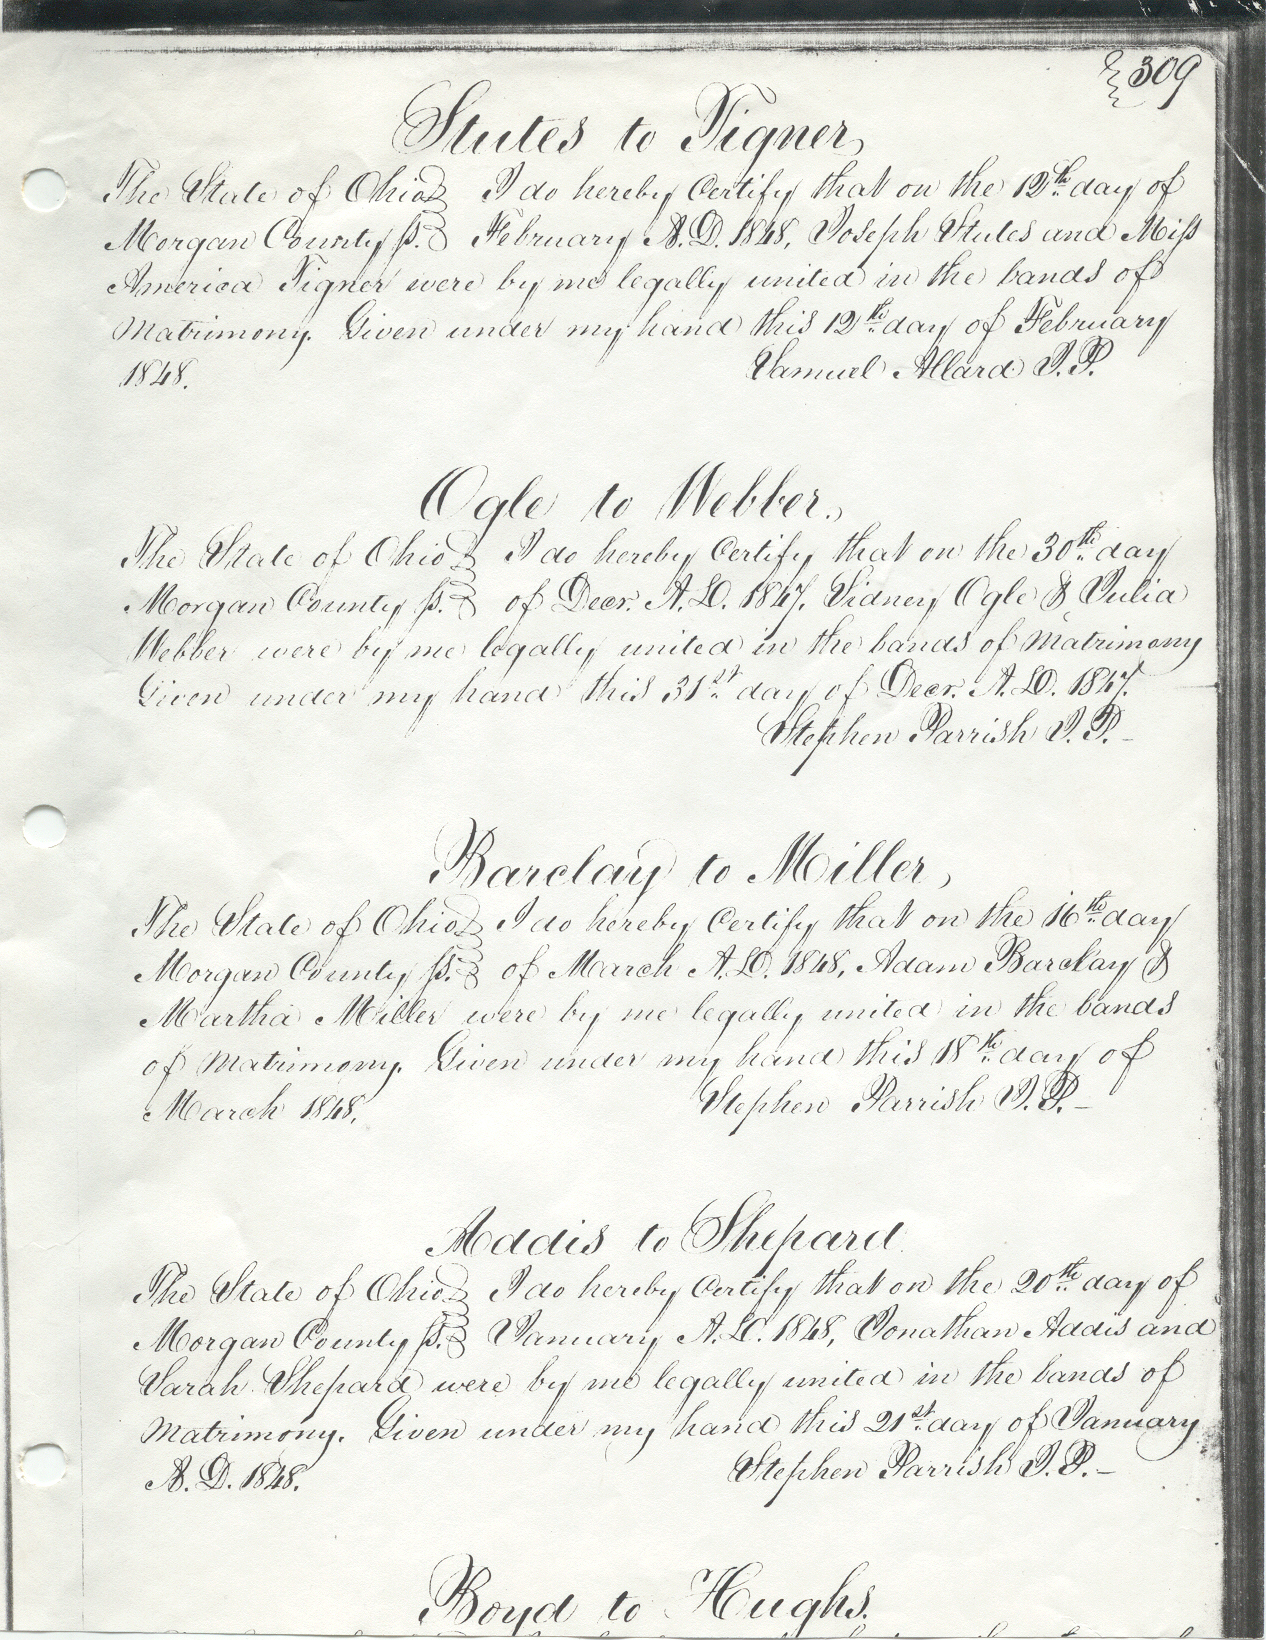 309
Stutes to Tigner,
The State of Ohio I do hereby Certify that on the 12th day of
Morgan County ss. February A.D. 1848, Joseph Stutes and Miss
America Tigner were by me legally united in the bands of
Matrimony. Given under my hand this 12th day of February
1848. Samuel Allard J.P.
Ogle to Webber.
The State of Ohio I do hereby Certify that on the 30th day
Morgan County ss. of Decr. A.D. 1847. Sidney Ogle & Julia
Webber were by me legally united in the bands of Matrimony
Given under my hand this 31st day of Decr. A.D. 1847.
Stephen Parrish J.P.–
Barclay to Miller,
The State of Ohio I do hereby Certify that on the 16th day
Morgan County ss. of March A.D. 1848, Adam Barclay &
Martha Miller were by me legally united in the bands
of Matrimony. Given under my hand this 18th day of
March 1848. Stephen Parrish J.P.–
Addis to Shepard
The State of Ohio I do hereby Certify that on the 20th day of
Morgan County ss. January A.D. 1848, Jonathan Addis and
Sarah Shepard were by me legally united in the bands of
Matrimony. Given under my hand this 21st day of January
A.D. 1848. Stephen Parrish J.P.–
Boyd to Hughs.